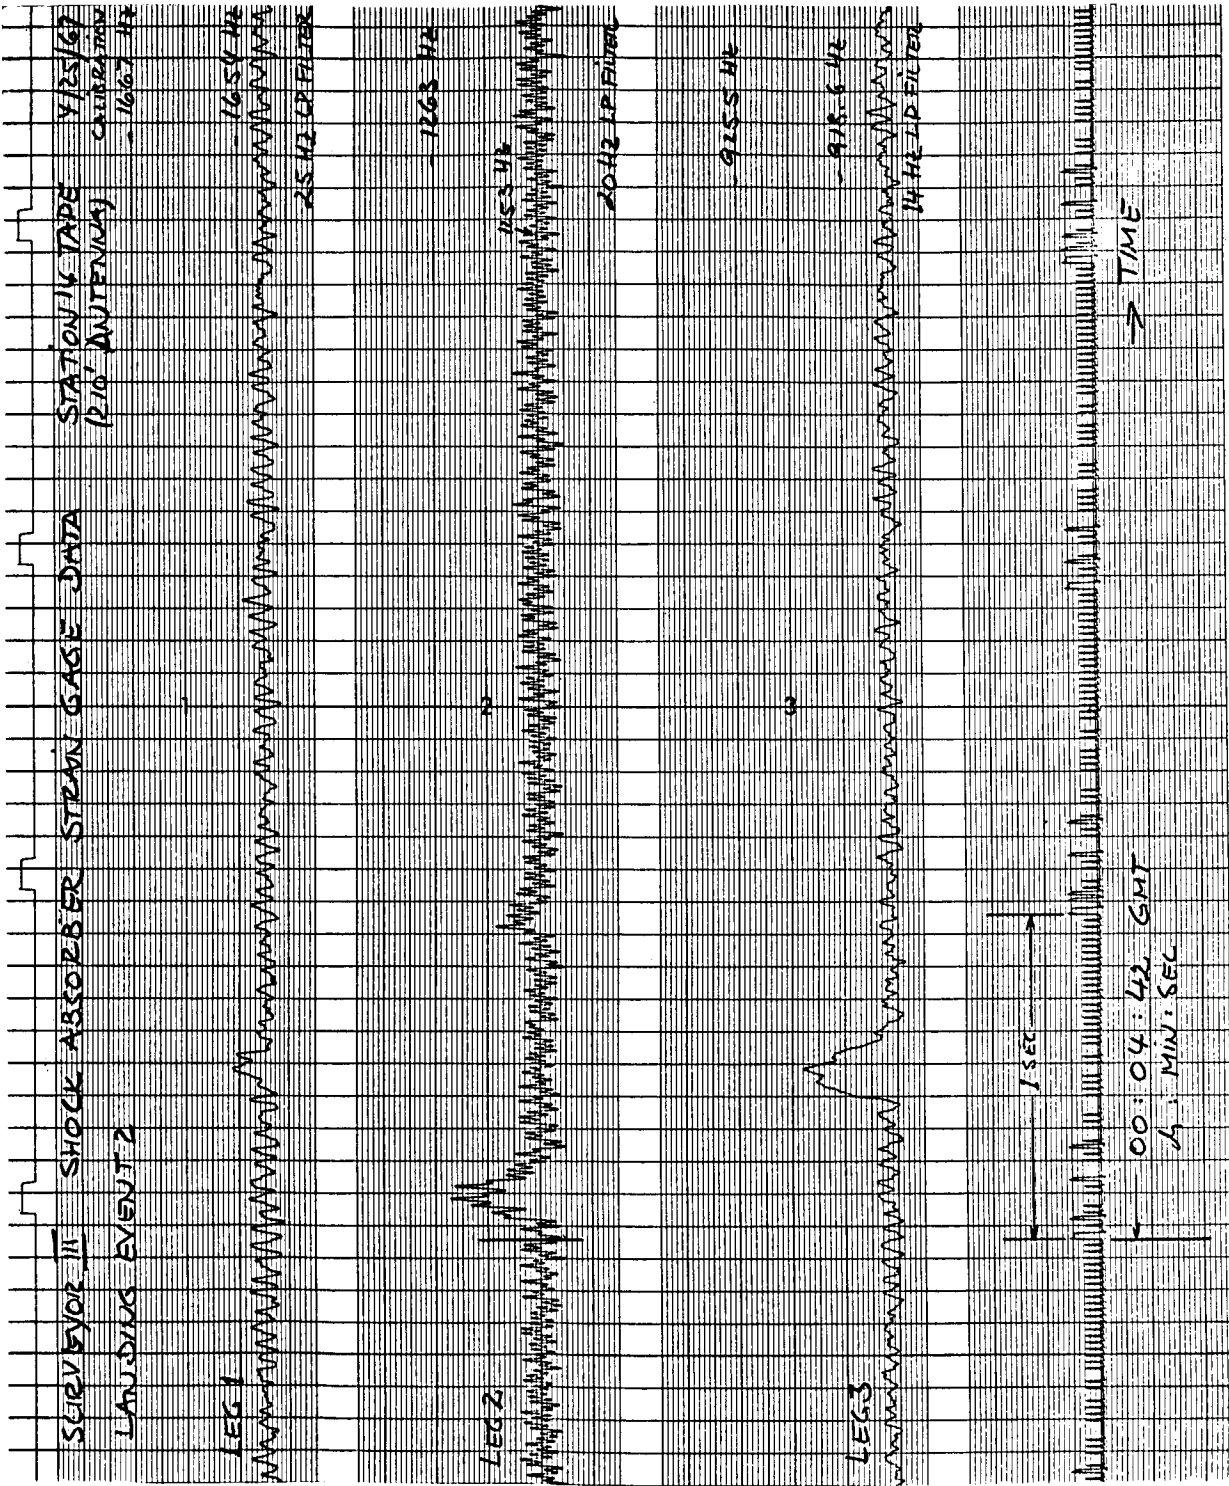 SURVEYOR III SHOCK ABSORBER STRAIN GAGE DATA STATION 14 TAPE 4/25/67
LANDING EVENT 2 (210' ANTENNA) CALIBRATION
- 1667 Hz
LEG 1
1
- 1654 Hz
25 HZ LP FILTER
- 1263 Hz
LEG 2
2
1153 Hz
20 HZ LP FILTER
- 925.5 Hz
3
- 918.6 Hz
LEG 3
14 HZ LP FILTER
1 SEC
00:04:42 GMT
h : MIN : SEC
→ TIME